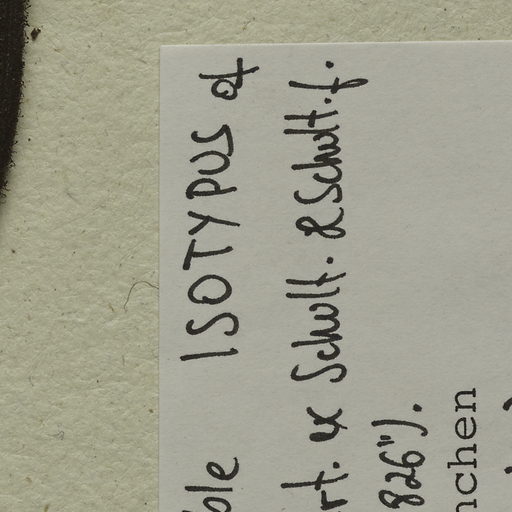 ble ISOTYPUS of
rt. ex Schult. & Schult. f.
826").
nchen